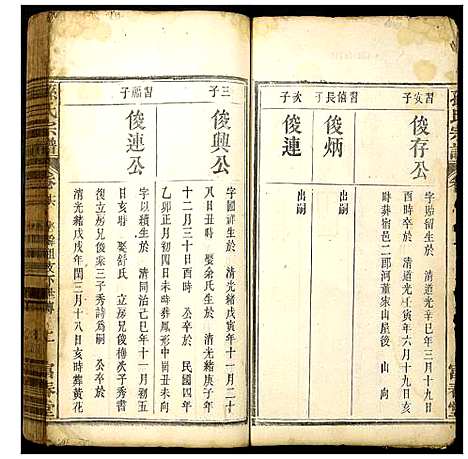 孫氏宗譜
習次子
俊存公
字貽留生於 清道光辛卯三月十九日
酉時卒於 清道光壬寅六月十九日亥
時葬宿邑二郎河董宋山屋後 山 向
習僖長子
俊炳
出嗣
次子
俊連
出嗣
富春堂
三子
俊興公
字國 生於 清光緒戊寅年十一月二十
八日丑時 娶余氏生於 清光緒庚子年
十二月三十日酉時 公卒於 民國四年
乙卯正月初四日未時葬鳳形中間丑未向
習 子
俊連公
字以續生於 清同治己巳年十一月初五
日亥時 娶舒氏 立房兄俊梅次子秀書
復立房兄俊乘三子秀詩為嗣 公卒於
清光緒戊戌年閏三月十八日亥時葬黃花
孫氏宗譜
卷
富春堂